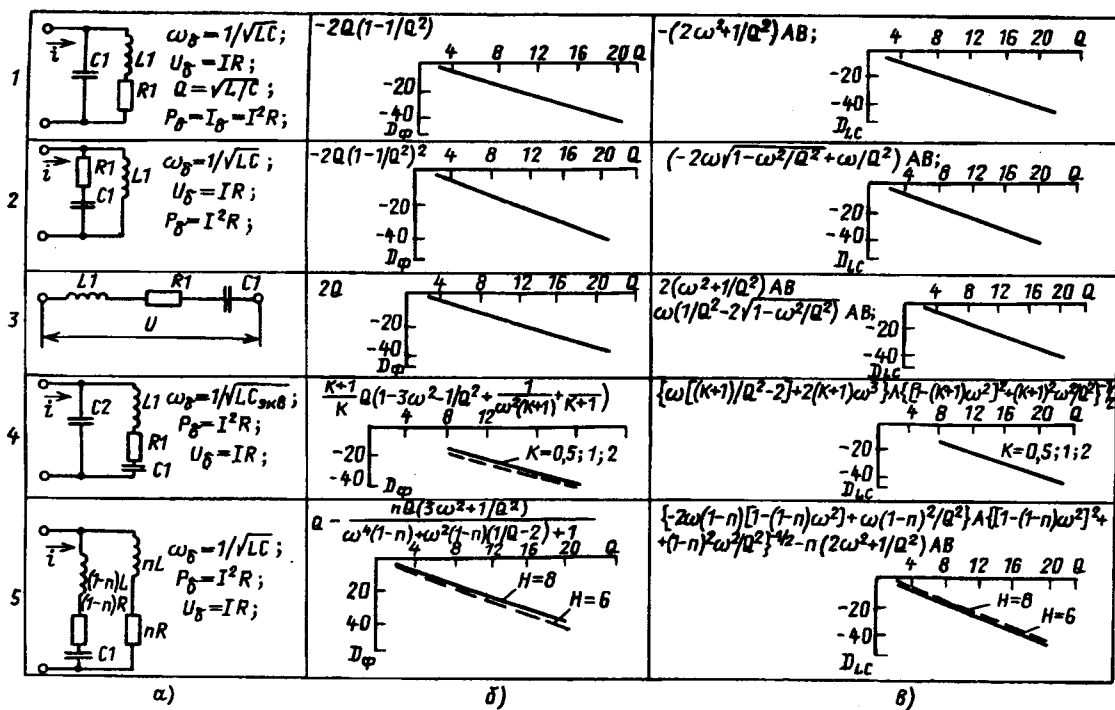 1
i
C1
L1
R1
ω_δ=1/√LC;
U_δ=IR;
Q=√L/C;
P_δ=I_δ=I²R;
-2Q(1-1/Q²)
4 8 12 16 20 Q
-20
-40
D_φ
-(2ω²+1/Q²)AB;
4 8 12 16 20 Q
-20
-40
D_LC
2
i
R1
C1
L1
ω_δ=1/√LC;
U_δ=IR;
P_δ=I²R;
-2Q(1-1/Q²)²
4 8 12 16 20 Q
-20
-40
D_φ
(-2ω√1-ω²/Q²+ω/Q²)AB;
4 8 12 16 20 Q
-20
-40
D_LC
3
L1 R1 C1
U
2Q
4 8 12 16 20 Q
-20
-40
D_φ
2(ω²+1/Q²)AB
ω(1/Q²-2√1-ω²/Q²)AB;
4 8 12 16 20 Q
-20
-40
D_LC
4
i
C2
L1
R1
C1
ω_δ=1/√LC_экв;
P_δ=I²R;
U_δ=IR;
K+1/K Q(1-3ω²-1/Q²+1/ω²(K+1)+1/K+1)
4 8 12
-20
-40
K=0,5; 1; 2
D_φ
{ω[(K+1)/Q²-2]+2(K+1)ω³}A{[1-(K+1)ω²]²+(K+1)²ω²/Q²}^-1/2
4 8 12 16 20 Q
-20
-40
K=0,5; 1; 2
D_LC
5
i
(1-n)L
(1-n)R
C1
nL
nR
ω_δ=1/√LC;
P_δ=I²R;
U_δ=IR;
Q - nQ(3ω²+1/Q²)/ω⁴(1-n)+ω²(1-n)(1/Q-2)+1
4 8 12 16 20 Q
20
40
H=8
H=6
D_φ
{-2ω(1-n)[1-(1-n)ω²]+ω(1-n)²/Q²}A{[1-(1-n)ω²]²+
+(1-n)²ω²/Q²}^-1/2-n(2ω²+1/Q²)AB
4 8 12 16 20 Q
-20
-40
H=8
H=6
D_LC
а) б) в)